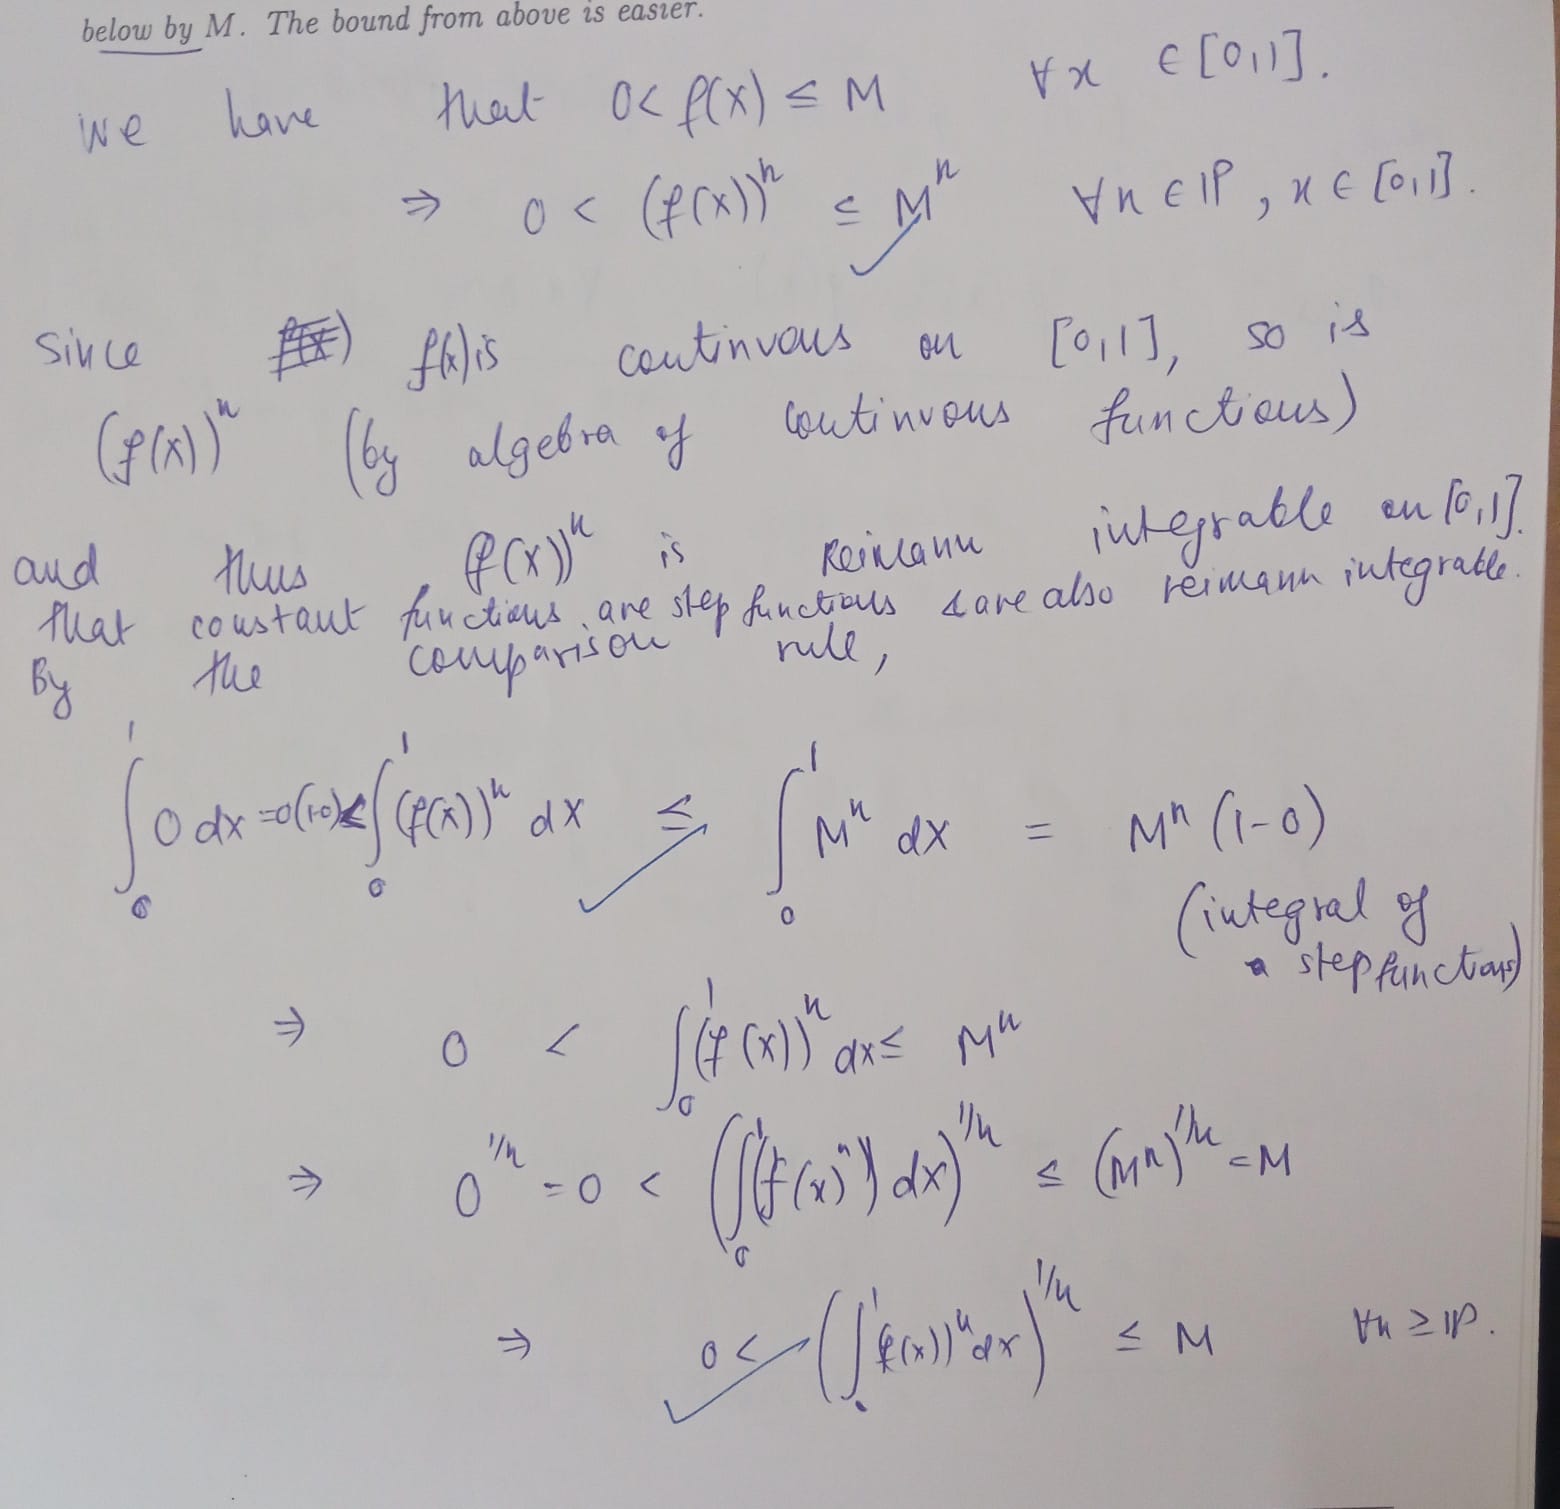 below by M. The bound from above is easier.
we have that 0< f(x) ≤ M ∀x ∈ [0,1].
⇒ 0 < (f(x))ⁿ ≤ Mⁿ ∀n ∈ ℙ, x ∈ [0,1].
Since f(x) is continuous on [0,1], so is
(f(x))ⁿ (by algebra of continuous functions)
and thus (f(x))ⁿ is Reimann integrable on [0,1].
that constant functions are step functions & are also reimann integrable.
By the comparison rule,
∫₀¹ 0 dx = 0(1-0) < ∫₀¹ (f(x))ⁿ dx ≤ ∫₀¹ Mⁿ dx = Mⁿ (1-0)
(integral of
a step function)
⇒ 0 < ∫₀¹ (f(x))ⁿ dx ≤ Mⁿ
⇒ 0^(1/n) = 0 < (∫₀¹ (f(x)ⁿ) dx)^(1/n) ≤ (Mⁿ)^(1/n) = M
⇒ 0 < (∫₀¹ f(x))ⁿ dx)^(1/n) ≤ M ∀n ≥ ℙ.